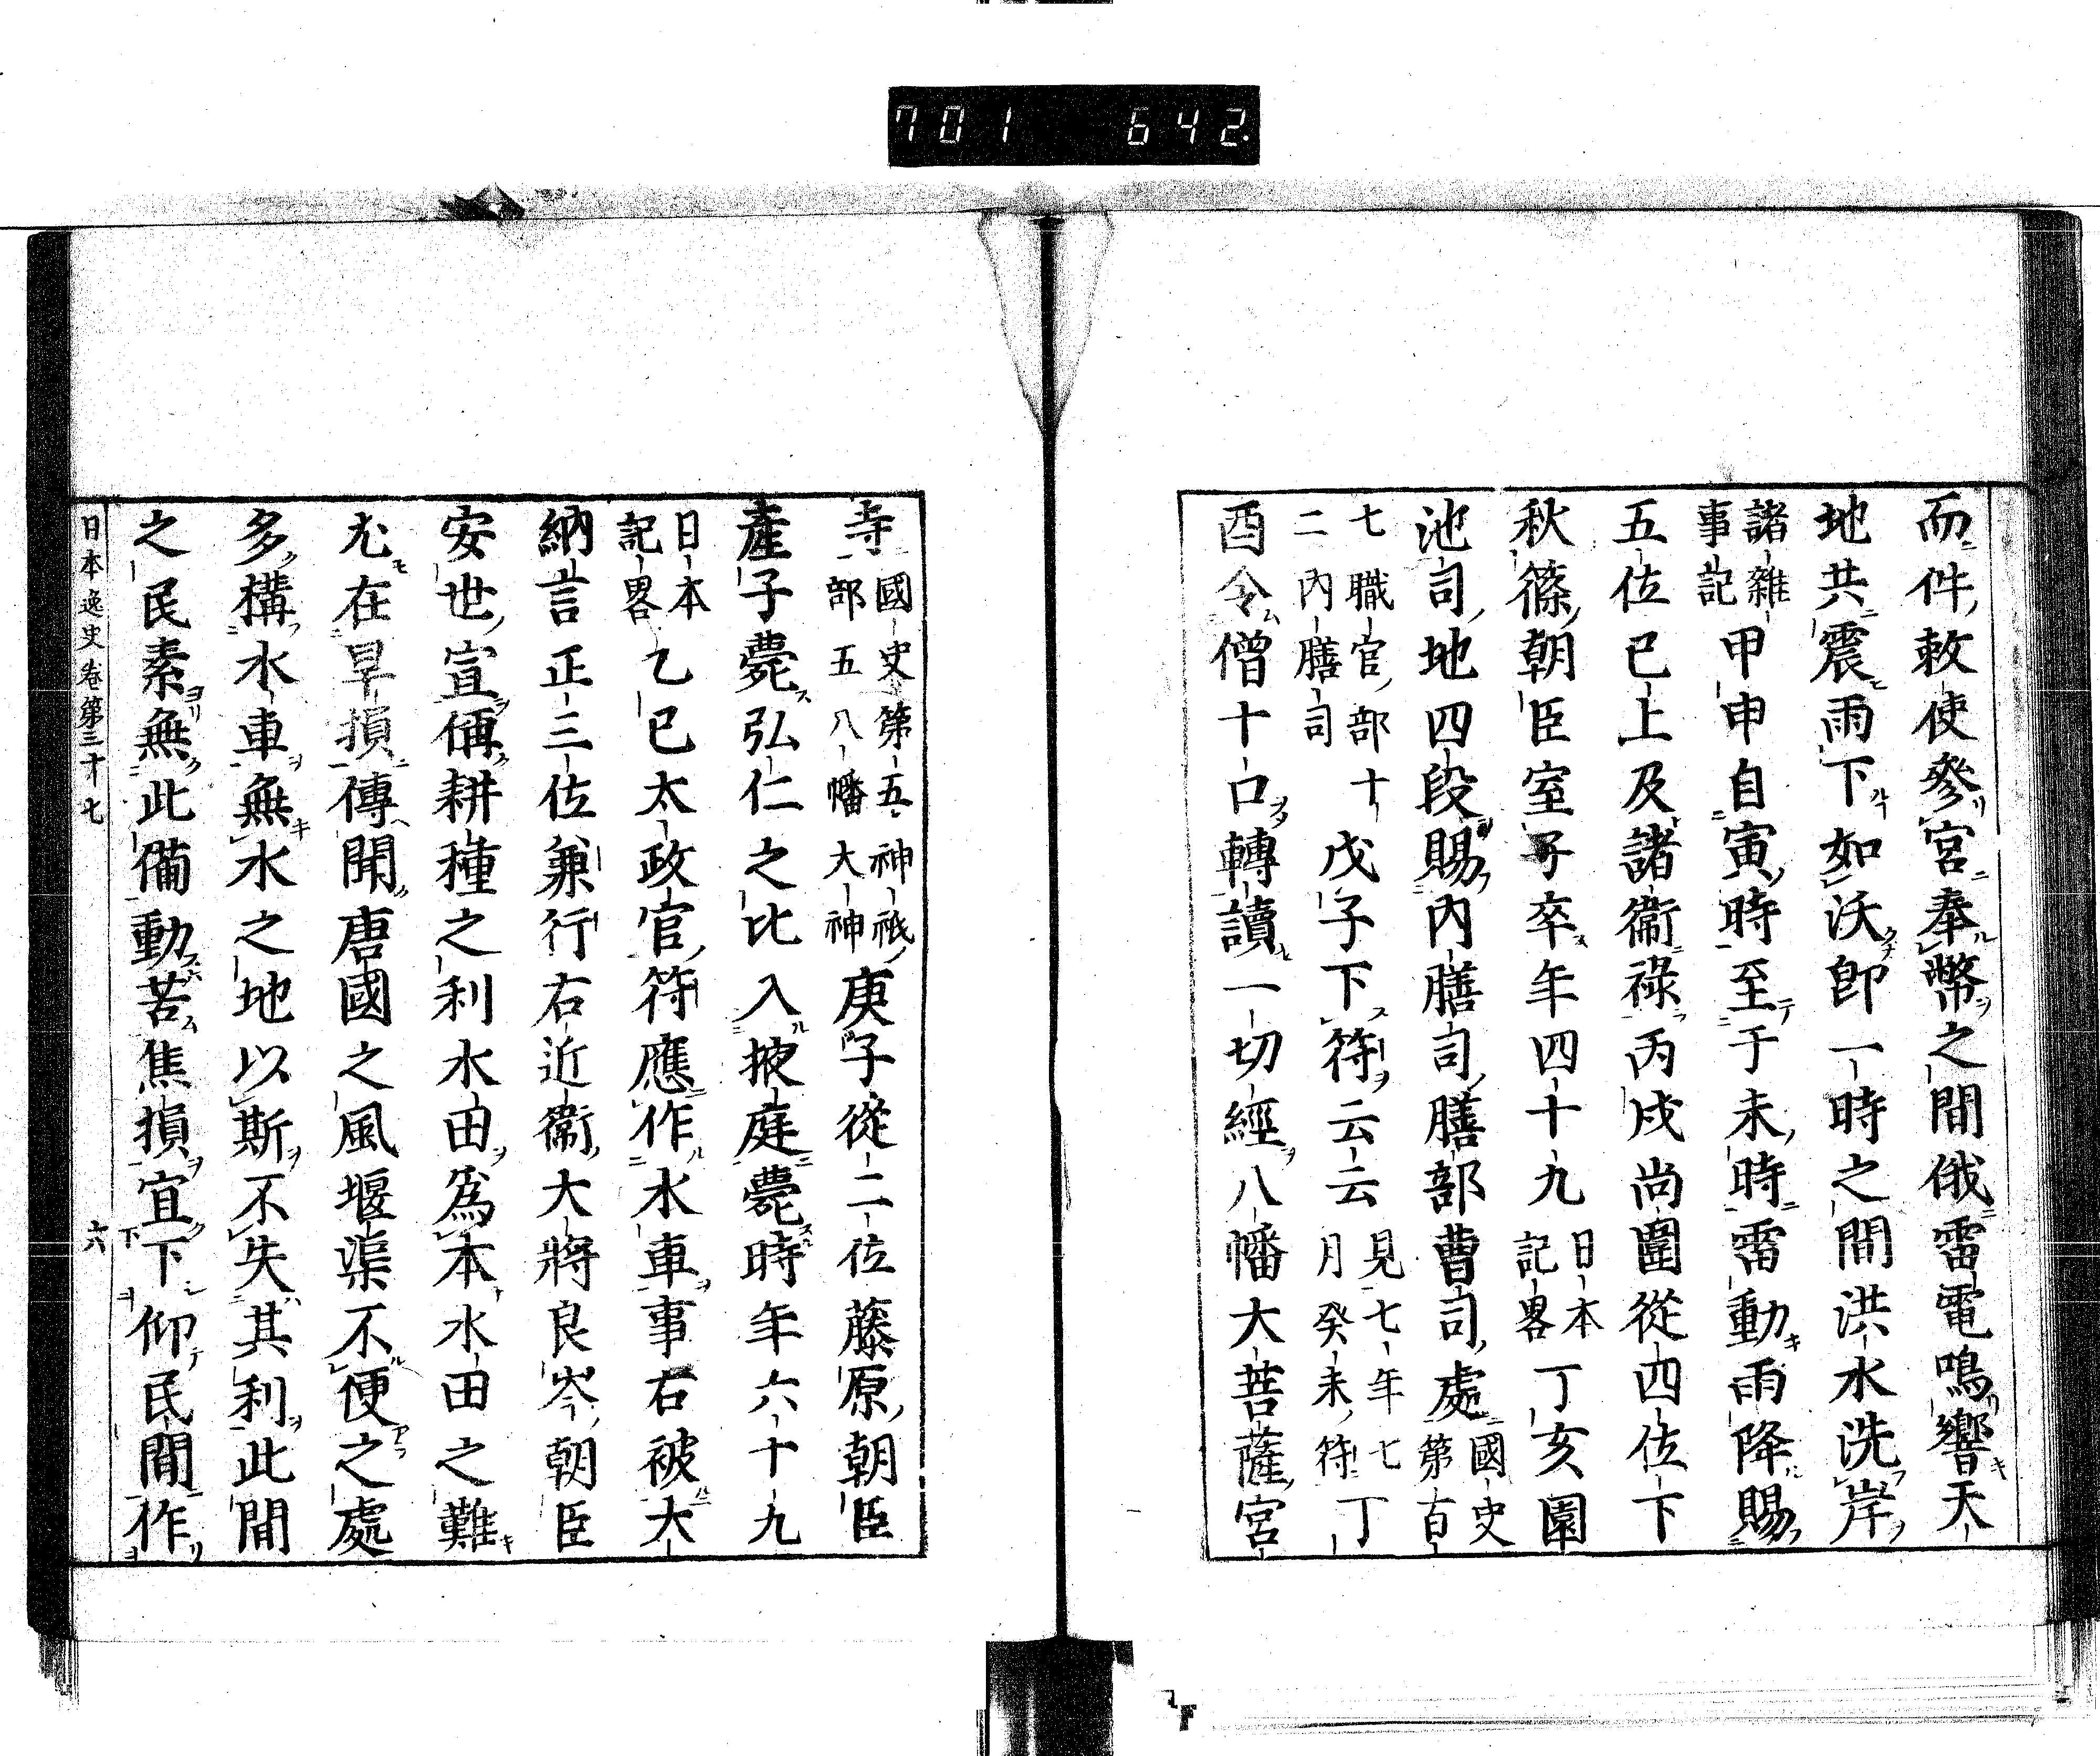 701 642
而件敕使參宮奉幣之間俄雷電鳴響天
地共震雨下如沃卽一時之間洪水洗岸
諸雜事記甲申自寅時至于未時雷動雨降賜
五位已上及諸衞祿丙戌尚闈從四位下
秋篠朝臣室子卒年四十九日本記畧丁亥園
池司地四段賜內膳司膳部曹司處國史第百
七職官部十二內膳司戊子下符云云見七年七月癸未符丁
酉令僧十口轉讀一切經八幡大菩薩宮
寺國史第五神祇部五八幡大神庚子從二位藤原朝臣
產子薨弘仁之比入掖庭薨時年六十九
日本記畧乙巳太政官符應作水車事右被大
納言正三位兼行右近衞大將良岑朝臣
安世宣偁耕種之利水田爲本水田之難
尤在旱損傳聞唐國之風堰渠不便之處
多構水車無水之地以斯不失其利此間
之民素無此備動苦焦損宜下仰民間作
日本逸史卷第三十七 六